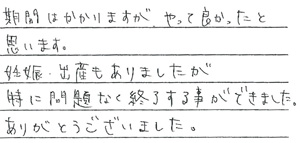 期間はかかりますが、やって良かったと
思います。
妊娠・出産もありましたが
特に問題なく終了する事ができました。
ありがとうございました。